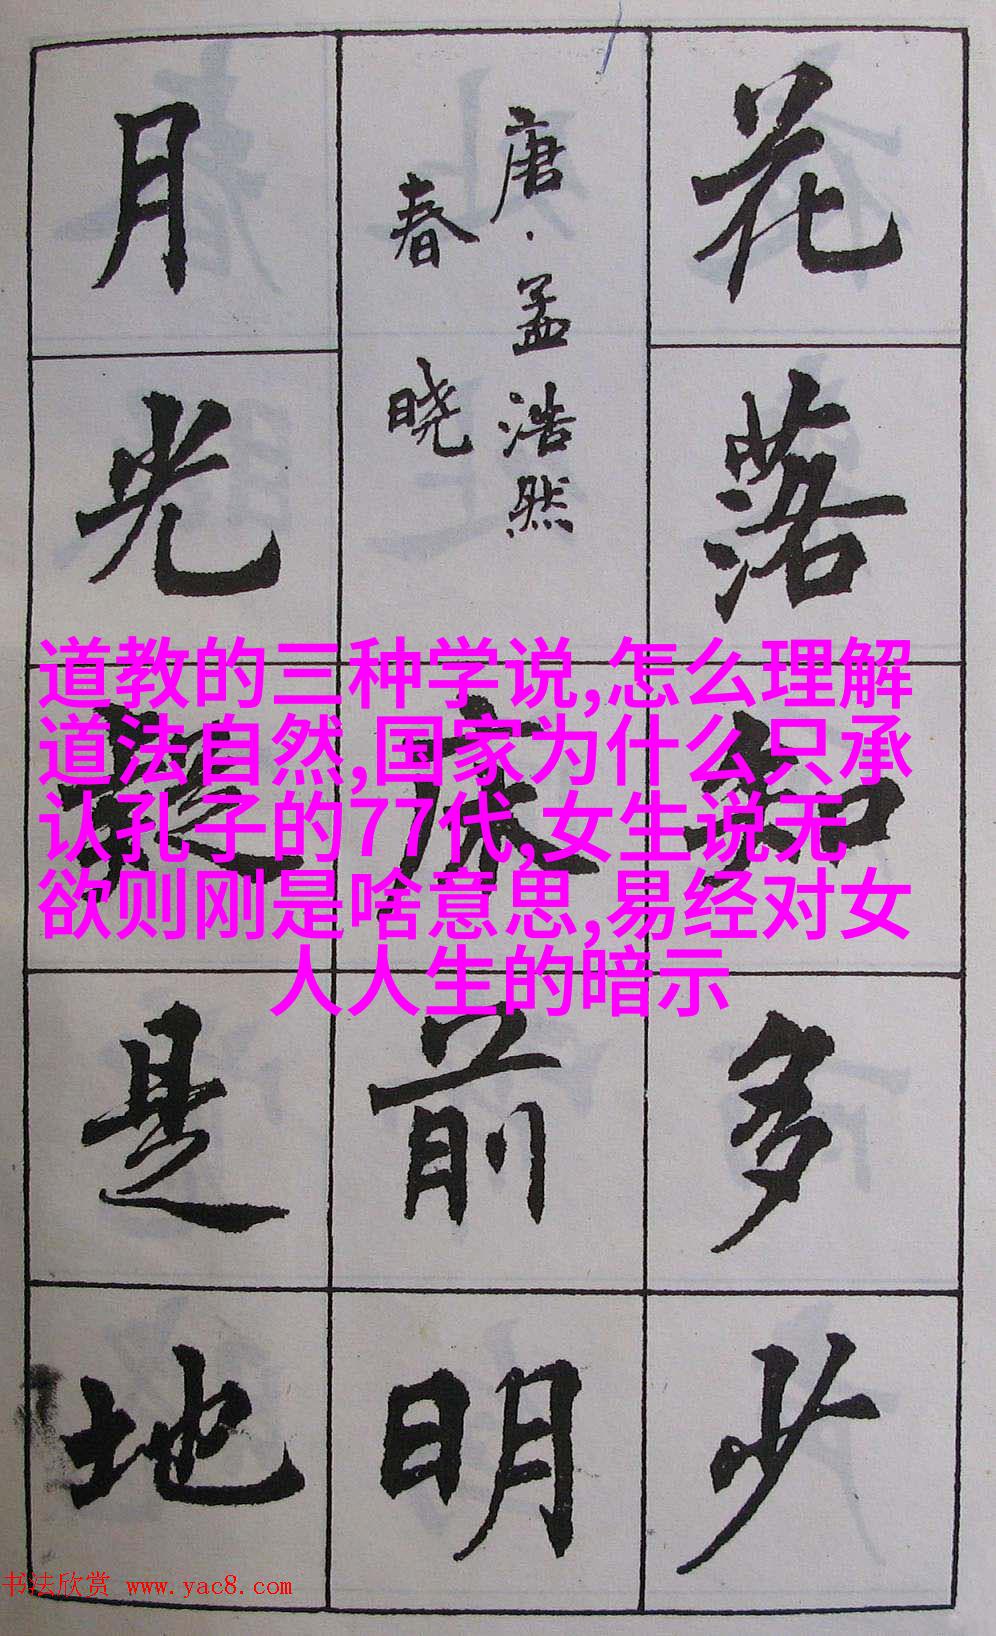 花落知多少
唐·孟浩然
春晓
床前明
月光疑是地
道教的三种学说,怎么理解
道法自然,国家为什么只承
认孔子的77代,女生说无
欲则刚是啥意思,易经对女
人人生的暗示
书法欣赏 www.yac8.com